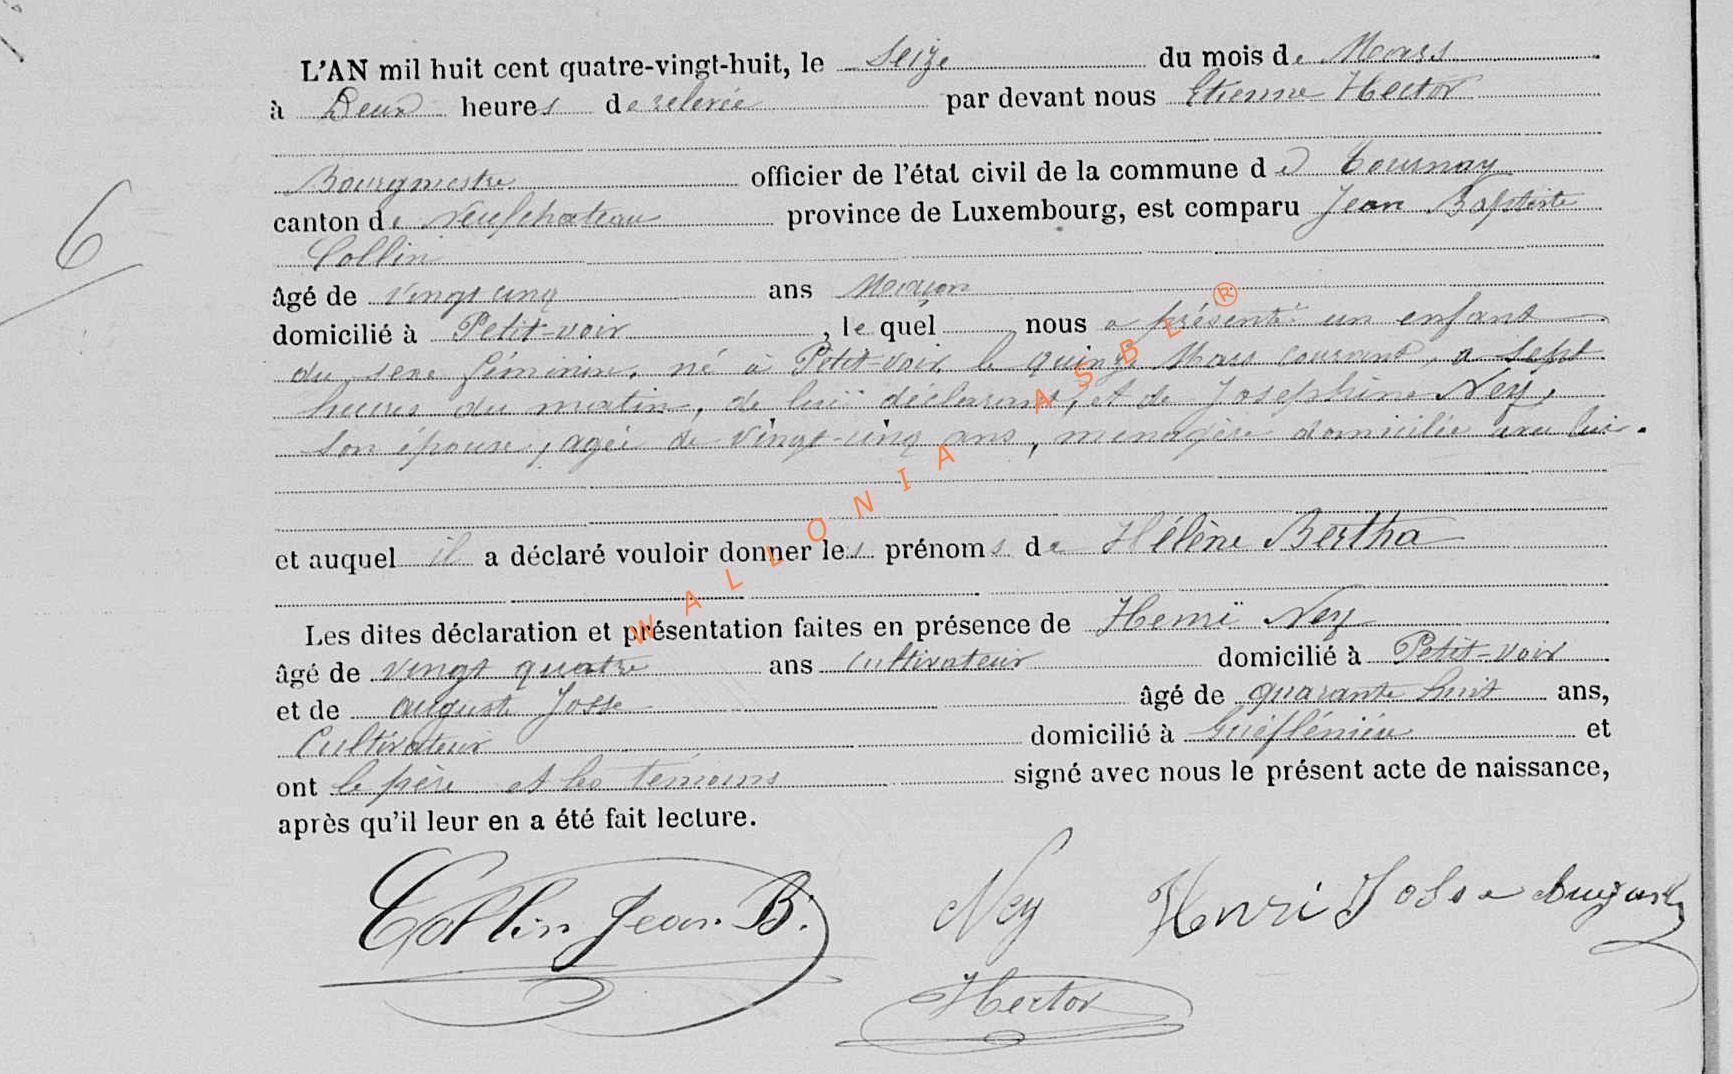 L'AN mil huit cent quatre-vingt-huit, le Seize du mois de Mars
à Deux heures de relevée par devant nous Etienne Hector
Bourgmestre officier de l'état civil de la commune de Tournay
canton de Neufchateau province de Luxembourg, est comparu Jean Baptiste
6
Collin
âgé de vingt cinq ans Maçon
domicilié à Petit-voir, lequel nous a présenté un enfant
du sexe féminin, né à Petit-voir le quinze Mars courant, a sept
heures du matin, de lui déclarant, et de Joséphine Ney,
son épouse, agée de vingt-cinq ans, menagère domiciliée avec lui.
et auquel il a déclaré vouloir donner les prénoms de Hélène Bertha
Les dites déclaration et présentation faites en présence de Henri Ney
âgé de vingt quatre ans cultivateur domicilié à Petit-voir
et de auguste Josse âgé de quarante huit ans,
Cultivateur domicilié à et
ont le père et les témoins signé avec nous le présent acte de naissance,
après qu'il leur en a été fait lecture.
Collin Jean B. Ney Henri Josse
Hector
WALLONIA ASBL ®